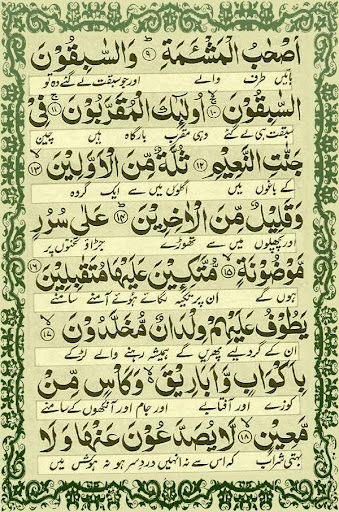 اَصْحٰبُ الْمَشْـَٔمَةِ ۹ وَالسّٰبِقُوْنَ
بائیں طرف والے اور جو سبقت لے گئے وہ تو
السّٰبِقُوْنَ ۱۰ اُولٰٓئِكَ الْمُقَرَّبُوْنَ ۱۱ فِیْ
سبقت ہی لے گئے وہی مقرّب بارگاہ ہیں چین
جَنّٰتِ النَّعِیْمِ ۱۲ ثُلَّةٌ مِّنَ الْاَوَّلِیْنَ ۱۳
کے باغوں میں اگلوں میں سے ایک گروہ
وَقَلِیْلٌ مِّنَ الْاٰخِرِیْنَ ۱۴ عَلٰی سُرُرٍ
اور پچھلوں میں سے تھوڑے جڑاؤ تختوں پر
مَّوْضُوْنَةٍ ۱۵ مُّتَّكِـِٕیْنَ عَلَیْهَا مُتَقٰبِلِیْنَ ۱۶
ہوں گے ان پر تکیہ لگائے ہوئے آمنے سامنے
یَطُوْفُ عَلَیْهِمْ وِلْدَانٌ مُّخَلَّدُوْنَ ۱۷
ان کے گرد لیے پھریں گے ہمیشہ رہنے والے لڑکے
بِاَكْوَابٍ وَّاَبَارِیْقَ وَكَاْسٍ مِّنْ
کوزے اور آفتابے اور جام اور آنکھوں کے سامنے
مَّعِیْنٍ ۱۸ لَّا یُصَدَّعُوْنَ عَنْهَا وَلَا
بہتی شراب کہ اس سے نہ انہیں درد سر ہو نہ ہوش میں